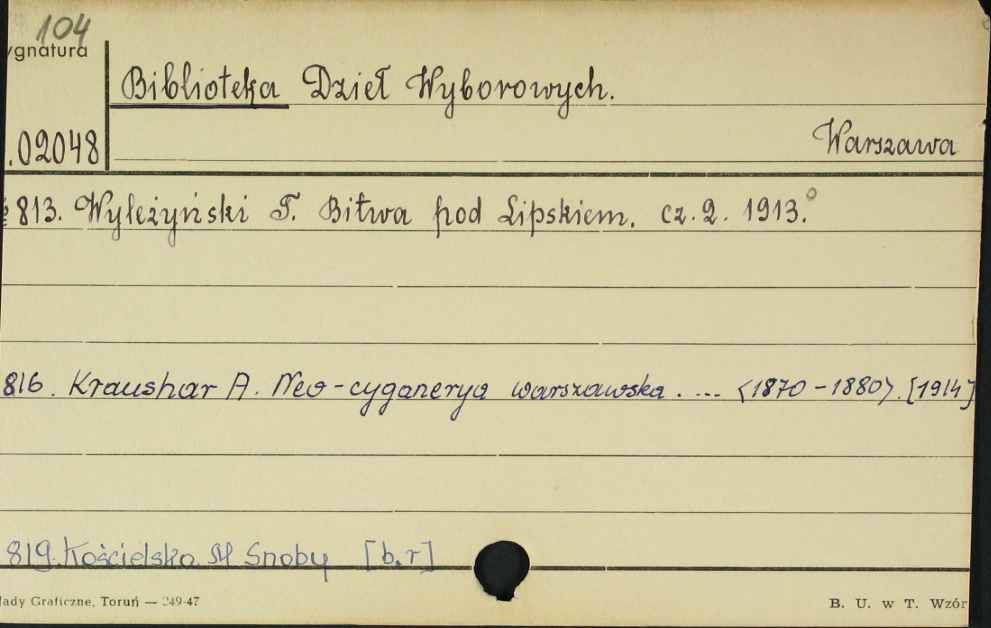 104
ygnatura
Biblioteka Dzieł Wyborowych.
.02048
Warszawa
813. Wyleżyński F. Bitwa pod Lipskiem. cz. 2. 1913.°
816. Kraushar A. Neo-cyganerya warszawska. ... <1870-1880>. [1914]
819. Kościelska M Snoby [b.r]
łady Graficzne, Toruń — 249-47
B. U. w T. Wzór